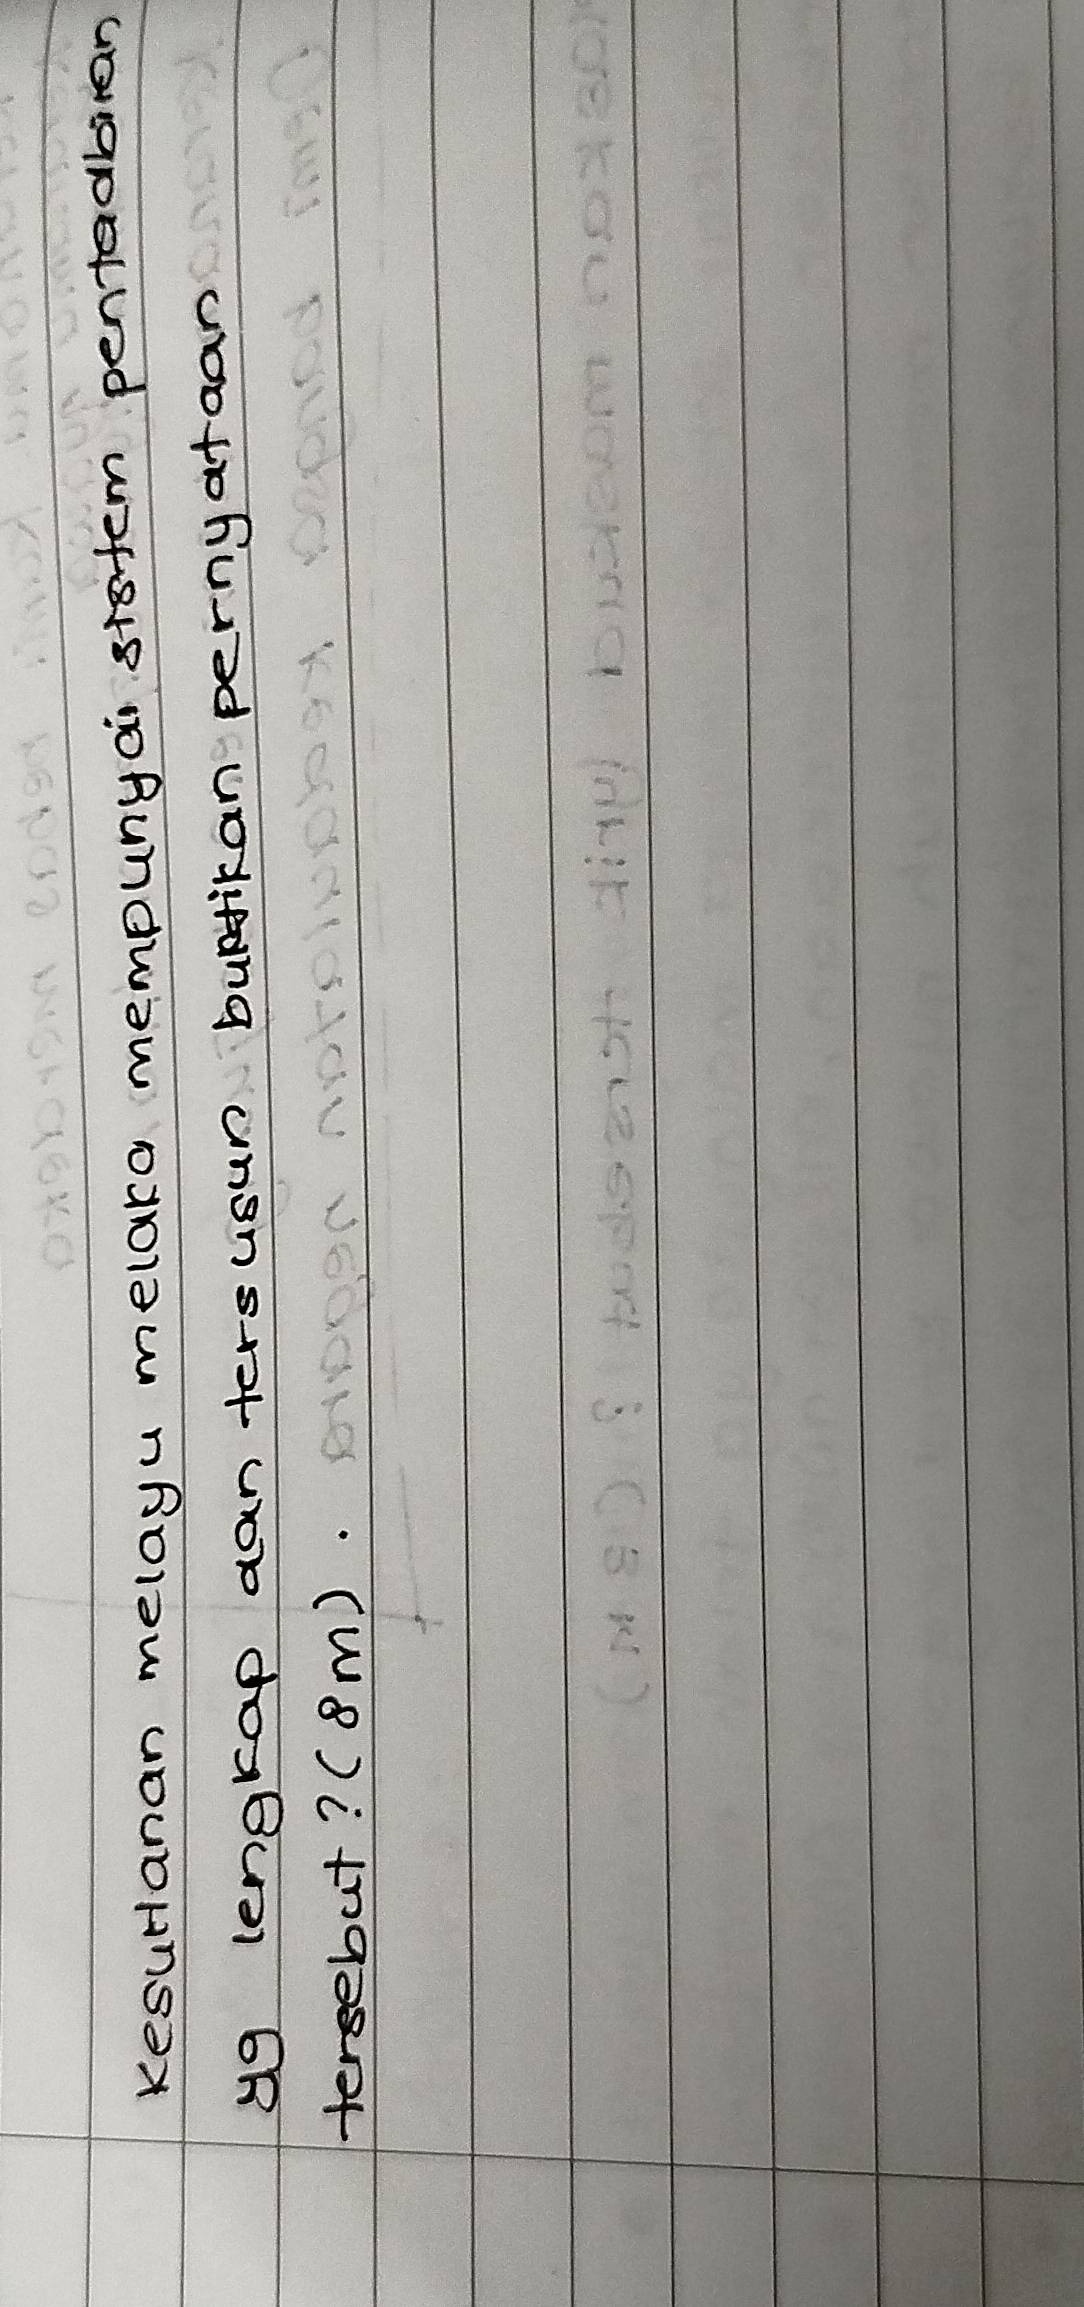 Kesultanan melayu melaka mempunyai sistem pentadbiran
yg lengkap dan tersusun buktikan pernyataan
tersebut? (8m).